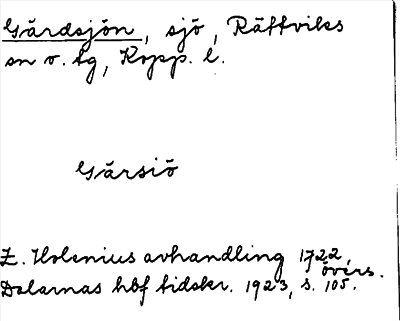 Gärdsjön, sjö, Rättviks
sn o. tg, Kopp. l.
Gärsiö
Z. Holenius avhandling 1722,
övers.
Dalarnas hbf tidskr. 1923, s. 105.